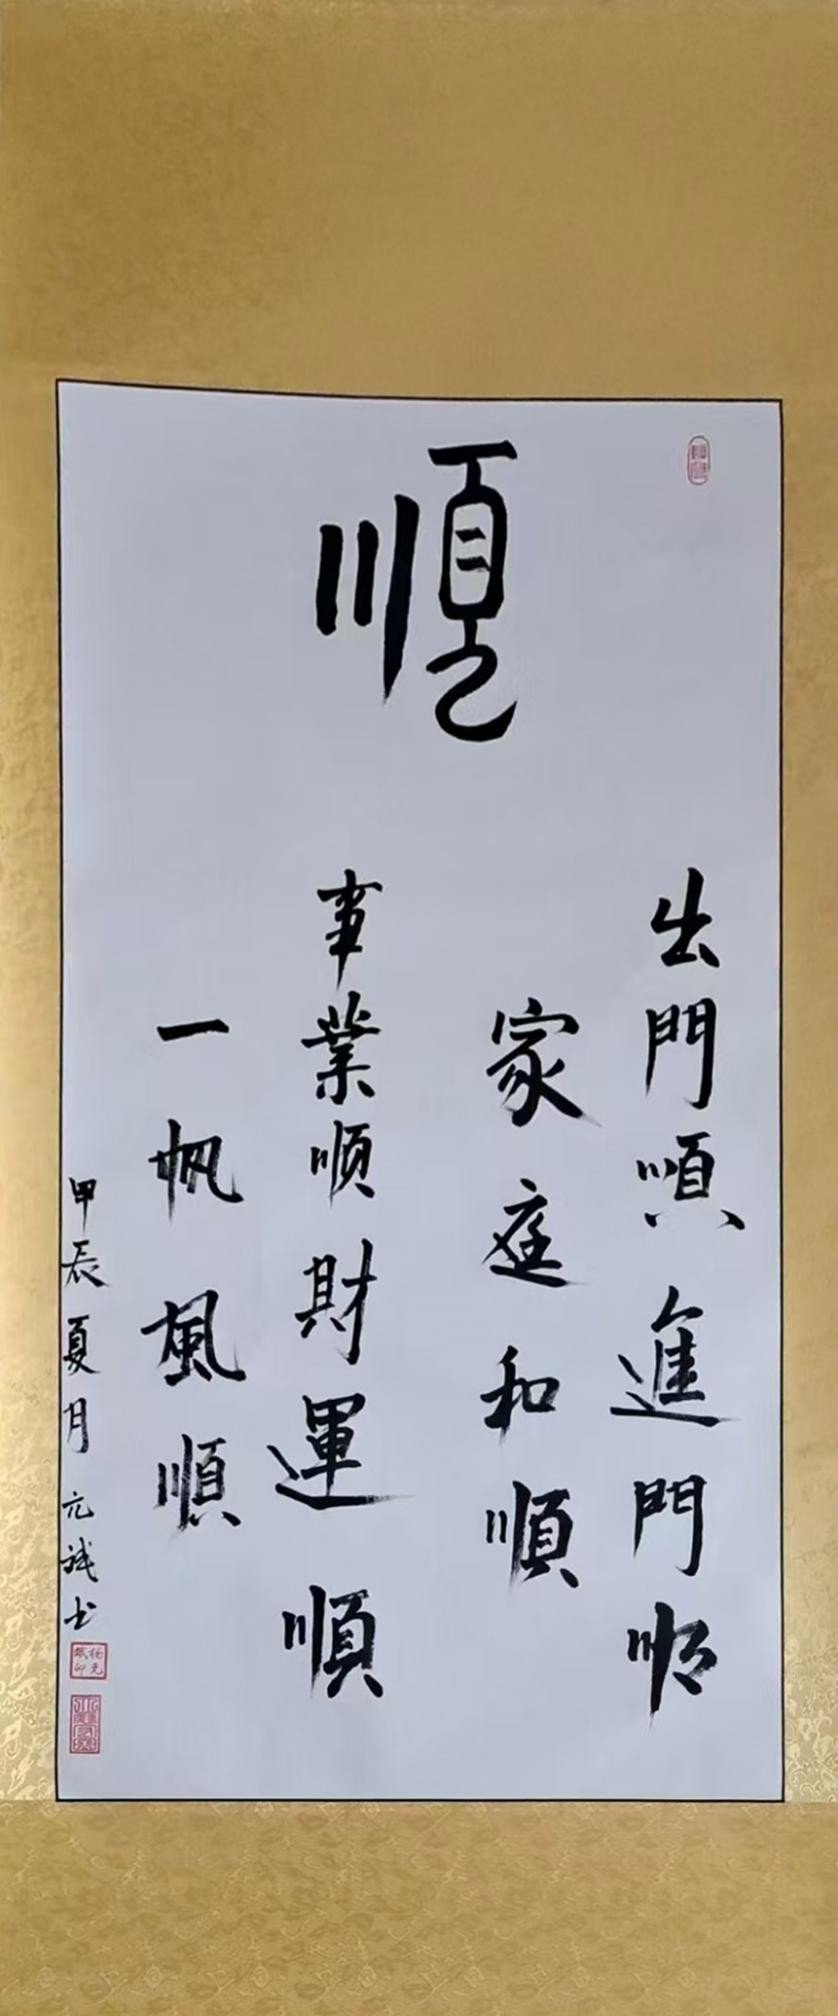 順
出門順進門順
家庭和順
事業順財運順
一帆風順
甲辰夏月元誠书
杨元誠印